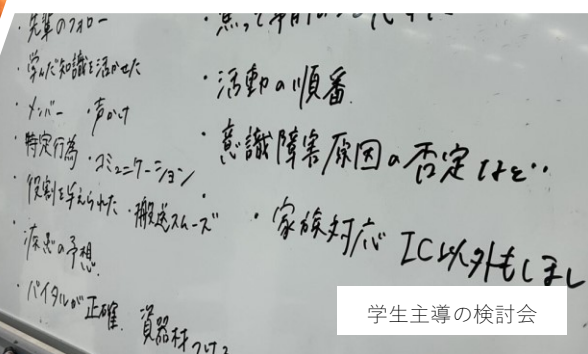 ・先輩のフォロー
・学んだ知識を活かせた
・メンバー ・声かけ
・特定行為 ・コミュニケーション
・役割を与えられた ・搬送スムーズ
・疾患の予想
・バイタルが正確、資器材
・活動の順番
・意識障害原因の否定など‥
・家族対応 IC以外もしまし
学生主導の検討会